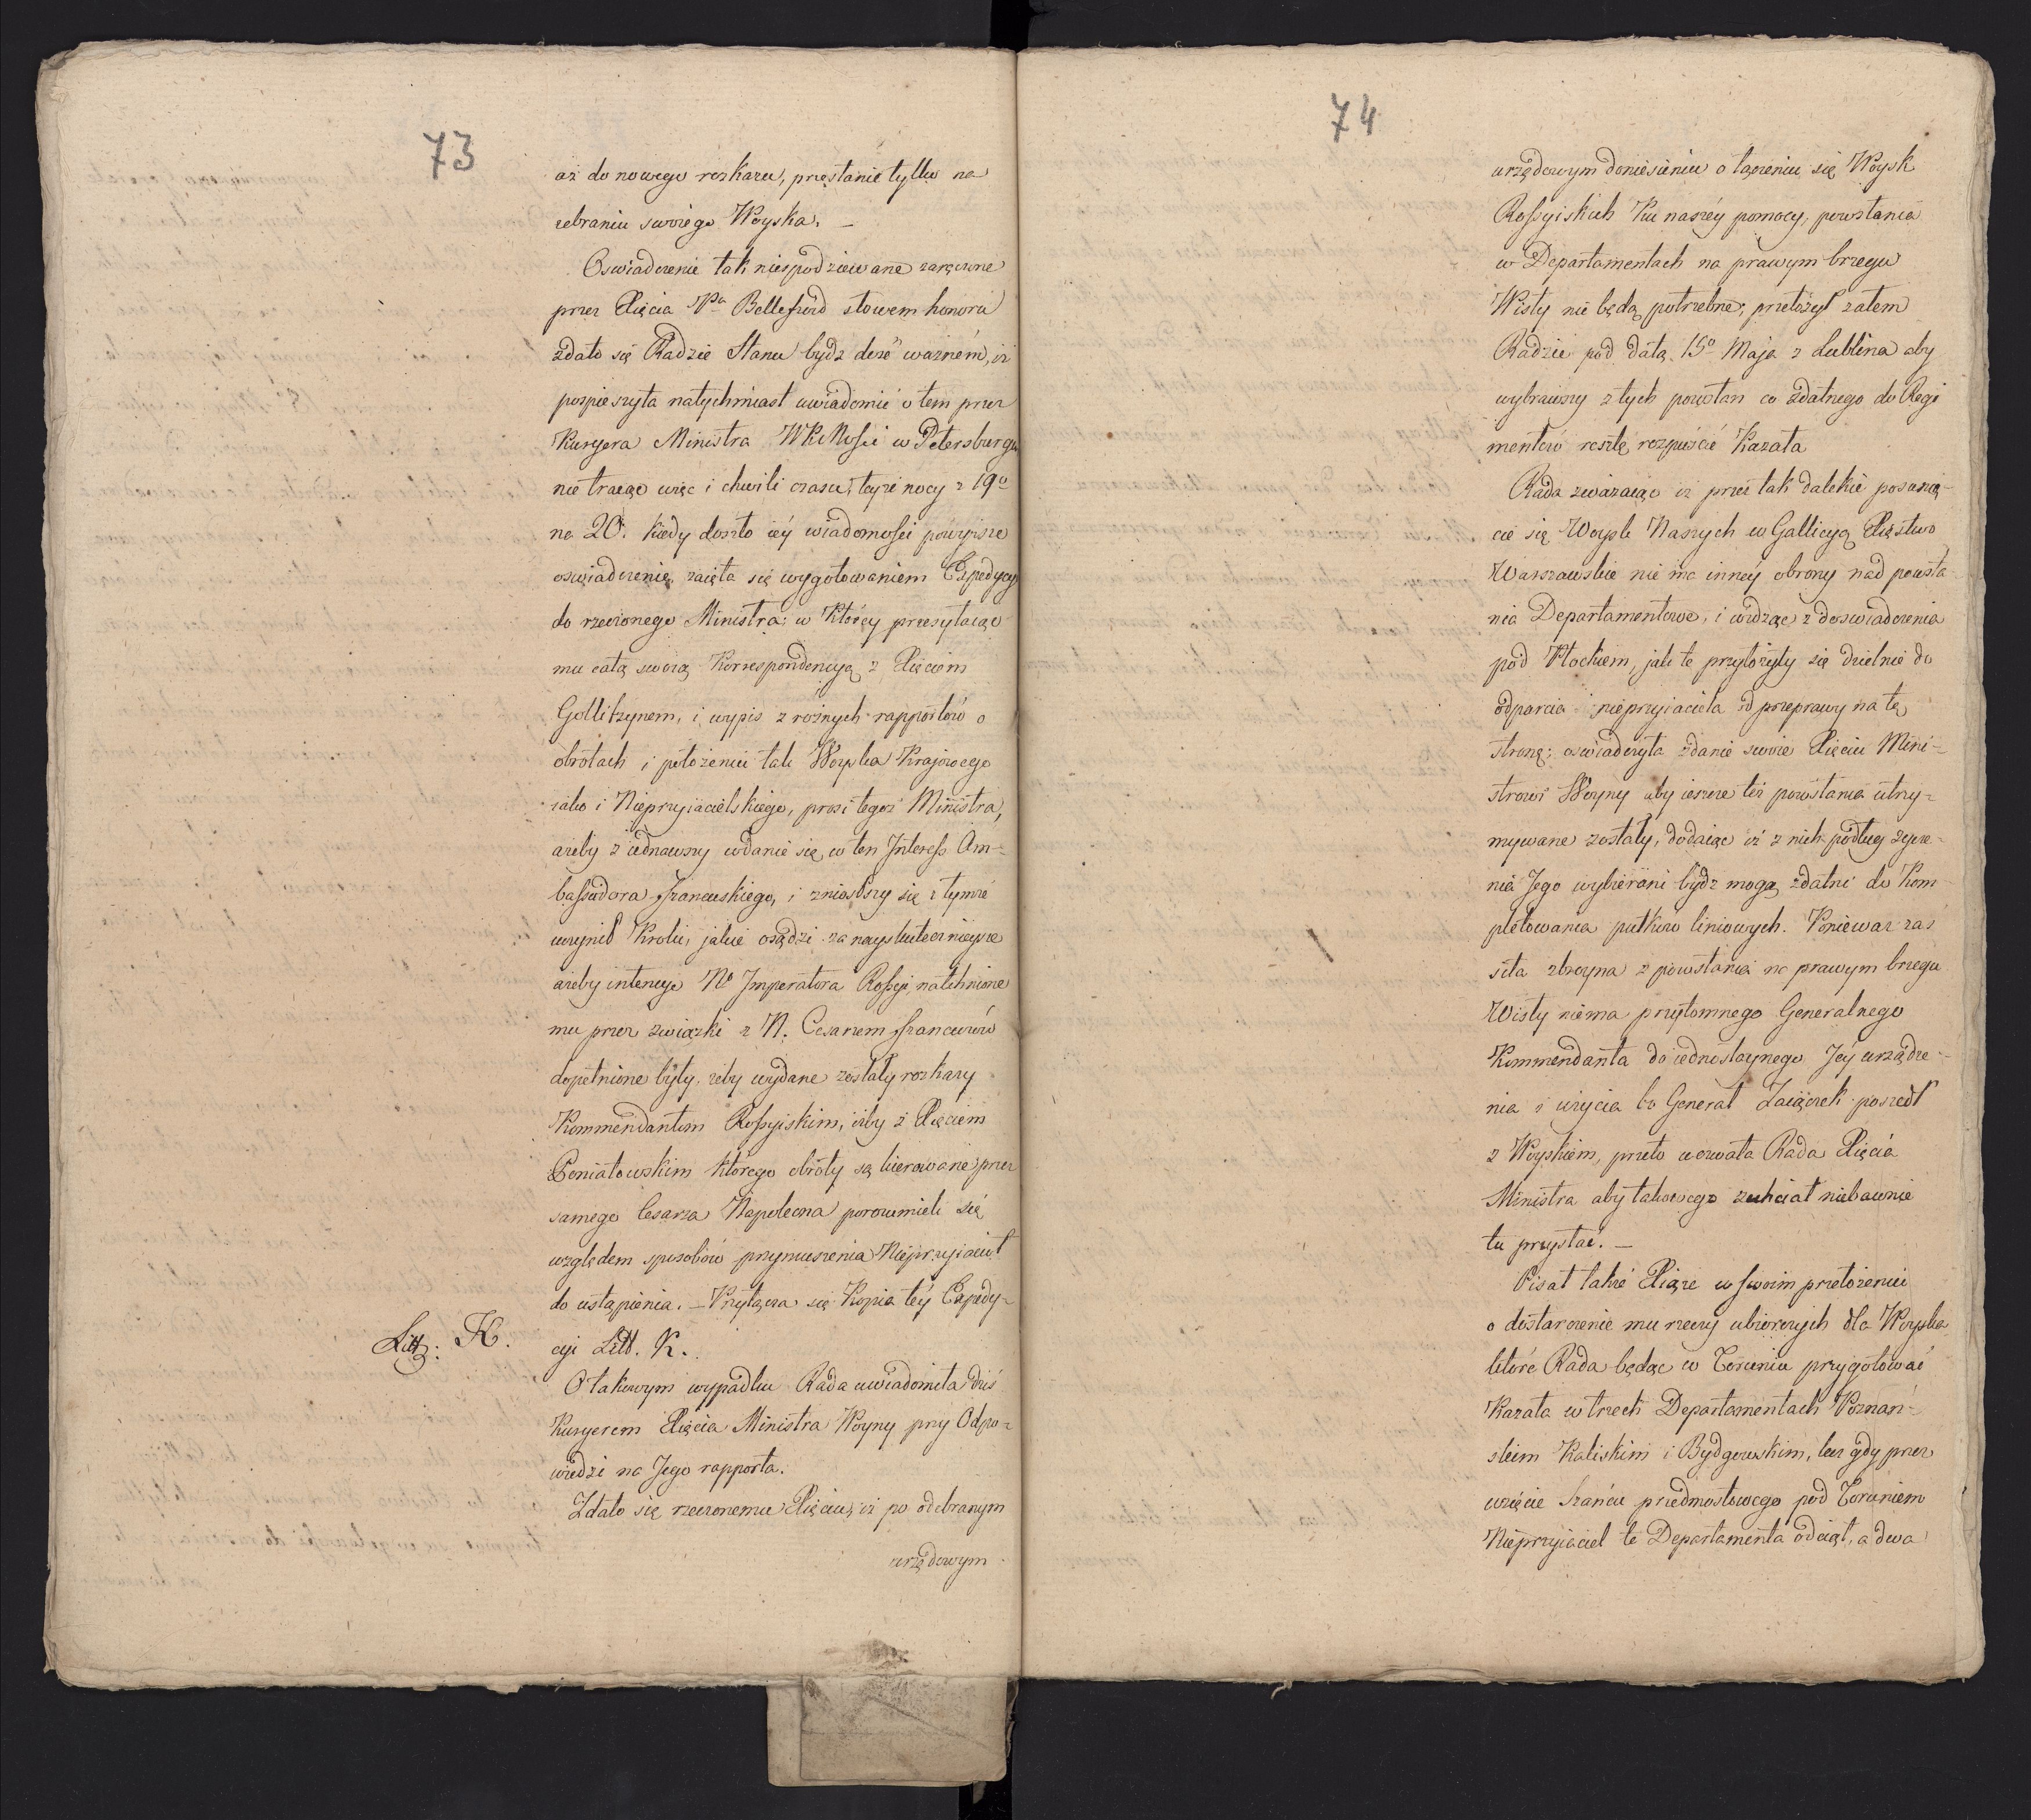 73
aż do nowego rozkazu, przestanie tylko na
zebraniu swoiego Woyska. —
Oswiadczenie tak niespodziewane zaręczone
przez Xięcia Pa Bellefroid słowem honoru
zdało się Radzie Stanu bydz dosć wazném, iż
pospieszyła natychmiast uwiadomić o tem przez
Kuryera Ministra WKMości w Petersburgu
nie tracąc więc i chwili czasu, teyże nocy z 19o
na 20. kiedy doszło iéy wiadomości powyższe
oswiadczenie, zaięła się wygotowaniem Expedycyi
do rzeczonego Ministra; w którey przesyłaiąc
mu całą swoią Korrespondencyą z Xięciem
Gollitzynem, i wypis z rożnych rapportów o
obrotach i położeniu tak Woyska Krajowego
iako i Nieprzyiacielskiego, prosi tegoż Ministra,
ażeby ziednawszy wdanie się w ten Interess Am=
bassadora francuskiego, i zniosłszy się z tymże
uczynił kroki, jakie osądzi za nayskutecznieysze
ażeby intencye No Imperatora Rossyi, natchnione
mu przez związki z N. Cesarzem francuzów
dopełnione były, żeby wydane zostały rozkazy
Kommendantom Rossyiskim, iżby z Xięciem
Poniatowskim którego obroty są kierowane przez
samego Cesarza Napoleona porozumieli się
względem sposobów przymuszenia Nieprzyiaciół
do ustąpienia. — Przyłącza się Kopia téy Expedy=
cyi Litt. K.
Litt: K.
O takowym wypadku Rada uwiadomiła dziś
Kuryerem Xięcia Ministra Woyny przy Odpo=
wiedzi na Jego rapporta.
Zdało się rzeczonemu Xięciu, iż po odebranym
urzędowym
74
urzędowym doniesieniu o łączeniu się Woysk
Rossyiskich ku naszéy pomocy, powstania
w Departamentach na prawym brzegu
Wisły nie będą potrzebne; przełożył zatem
Radzie pod datą 15o Maja z Lublina aby
wybrawszy z tych powstań co zdatnego do Regi
mentów resztę rozpuścić kazała
Rada zważaiąc iż przez tak dalekie posunię=
cie się Woysk Naszych w Gallicyą Xięstwo
Warszawskie nie ma innéy obrony nad powsta
nia Departamentowe, i widząc z doswiadczenia
pod Płockiem, jak te przyłożyły się dzielnie do
odparcia nieprzyiaciela od przeprawy na tę
stronę; oświadczyła zdanie swoie Xięciu Mini=
strowi Woyny aby ieszcze też powstania utrzy=
mywane zostały, dodaiąc iż z nich podług życze=
nia Jego wybierani bydz mogą zdatni do Kom
pletowania pułków liniowych. Ponieważ zaś
siła zbroyna z powstania na prawym brzegu
Wisły niema przytomnego Generalnego
Kommendanta do iednostaynego Jéy urządze=
nia i użycia bo Generał Zaiączek poszedł
z Woyskiem, przeto wezwała Rada Xięcia
Ministra aby takowego zechciał niebawnie
tu przysłać. —
Pisał także Xiąże w swoim przełożeniu
o dostarczenie mu rzeczy ubiorczych dla Woyska
które Rada będąc w Toruniu przygotować
kazała w trzech Departamentach Poznań=
skim Kaliskim i Bydgowskim, lecz gdy przez
wzięcie Szańcu przedmostowego pod Toruniem
Nieprzyiaciel te Departamenta odciął, a dwa